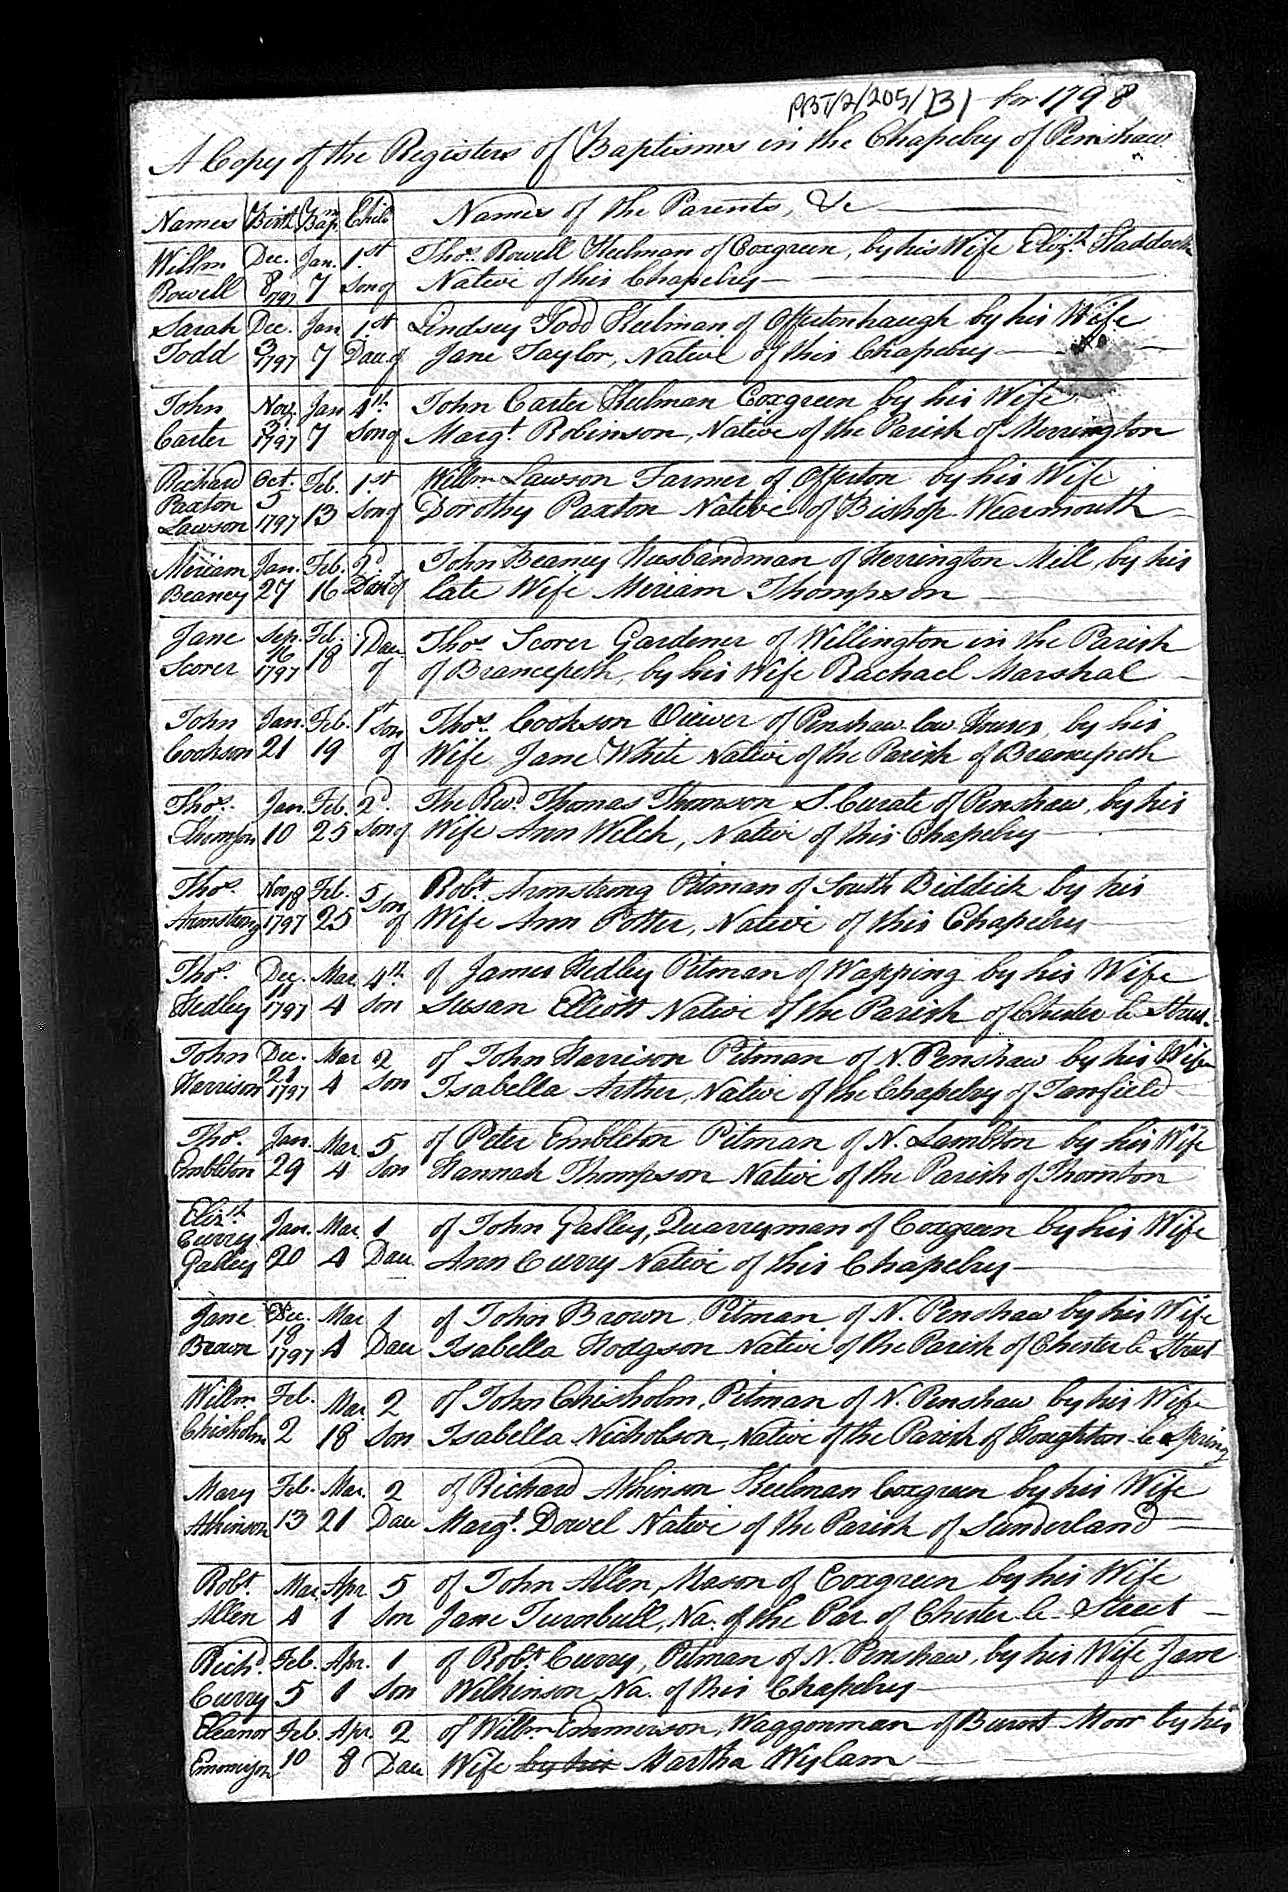 PBT/2/205/131 for 1798
A Copy of the Registers of Baptisms in the Chapelry of Penshaw
Names Birth Bap.m Child Names of the Parents, &c
Willm Dec. Jan. 1.st Thos. Rowell Keelman of Coxgreen, by his Wife Eliz.th
Rowell 8 1797 7 Son of Native of this Chapelry
Sarah Dec. Jan 1st Lindsey Todd Keelman of Offertonhaugh by his Wife
Todd 1797 7 Dau. of Jane Taylor, Native of this Chapelry
John Nov. Jan 4th. John Carter Keelman Coxgreen by his Wife
Carter 1797 7 Son of Margt. Robinson, Native of the Parish of Merrington
Richard Oct. Feb. 1.st Willm Lawson Farmer of Offerton by his Wife
Paxton 5 13 Son of Dorothy Paxton Native of Bishop Wearmouth
Lawson 1797
Meriam Jan. Feb. 2d John Beaney Husbandman of Herrington Mill by his
Beaney 27 16 Daur of late Wife Meriam Thompson
Jane Sep. Feb. 1 Dau Thos. Scorer Gardener of Willington in the Parish
Scorer 16 1797 18 of of Brancepeth, by his Wife Rachael Marshal
John Jan. Feb. 1st Son Thos. Cookson Viewer of Penshaw low Houses, by his
Cookson 21 19 of Wife Jane White Native of the Parish of Brancepeth
Thos. Jan. Feb. 2d. The Revd. Thomas Thomson S. Curate of Penshaw, by his
Thomson 10 25 Son of Wife Ann Welch, Native of this Chapelry
Thos. Nov 18 Feb. 5 Son Robt. Armstrong Pitman of South Biddick by his
Armstrong 1797 25 of Wife Ann Potter, Native of this Chapelry
Thos. Dec. Mar. 4th. of James Hedley Pitman of Wapping by his Wife
Hedley 17 1797 4 Son Susan Elliott Native of the Parish of Chester le Street.
John Dec. Mar 2 of John Harrison Pitman of N. Penshaw by his Wife
Harrison 21 1797 4 Son Isabella Arther, Native of the Chapelry of Tanfield
Thos. Jan. Mar. 5 of Peter Embleton Pitman of N. Lambton by his Wife
Embleton 29 4 Son Hannah Thompson Native of the Parish of Thornton
Eliz.th Jan. Mar. 1 of John Galley, Quarryman of Coxgreen by his Wife
Curry 20 4 Dau Ann Curry Native of this Chapelry
Galley
Jane Dec. Mar 1 of John Brown Pitman of N. Penshaw by his Wife
Brown 18 1797 4 Dau Isabella Hodgson Native of the Parish of Chester le Street
Willm. Feb. Mar. 2 of John Chisholm, Pitman of N. Penshaw by his Wife
Chisholm 2 18 Son Isabella Nicholson, Native of the Parish of Houghton le Spring
Mary Feb. Mar. 2 of Richard Atkinson Keelman Coxgreen by his Wife
Atkinson 13 21 Dau Margt. Dowel Native of the Parish of Sunderland
Robt. Mar. Apr 5 of John Allen, Mason of Coxgreen by his Wife
Allen 4 1 Son Jane Turnbull, Na. of the Par. of Chester le Street
Richd. Feb. Apr. 1 of Robt. Curry, Pitman of N. Penshaw, by his Wife Jane
Curry 5 1 Son Wilkinson Na. of this Chapelry
Eleanor Feb. Apr. 2 of Willm. Emmerson, Waggonman of Burnt Moor by his
Emmerson 10 8 Dau Wife by his Martha Wylam